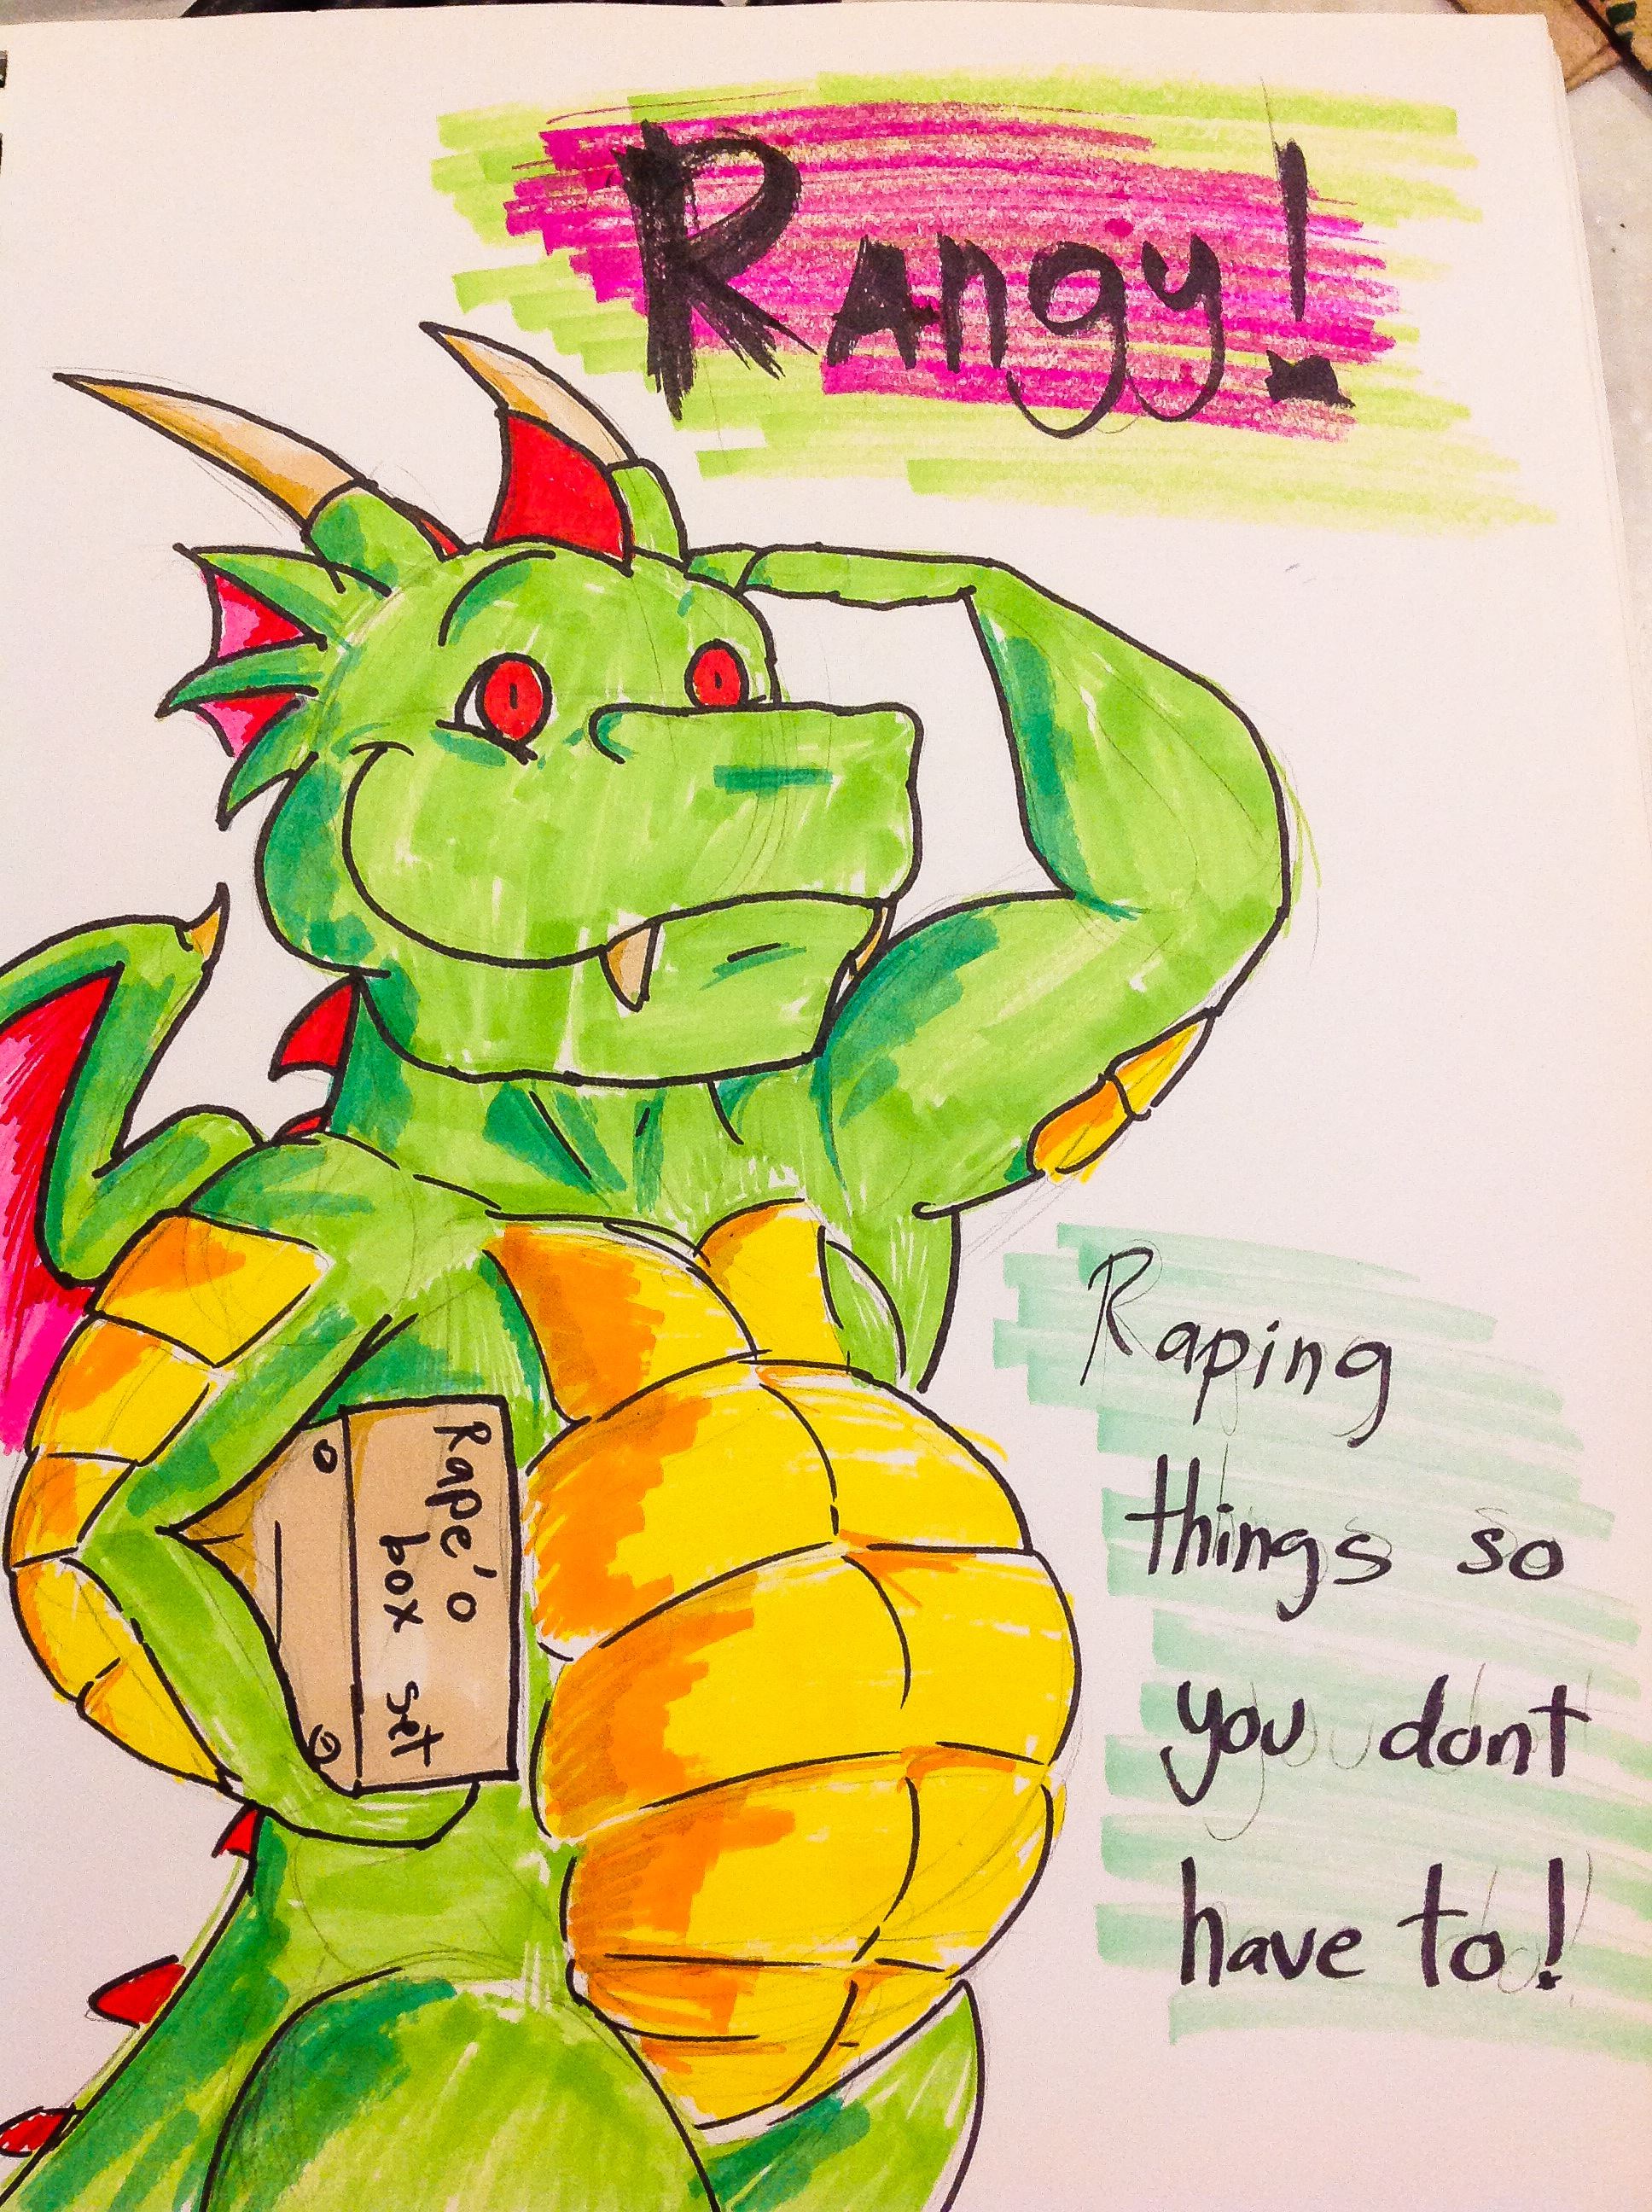 Rangy!
Rape'o
box set
Raping
things so
you dont
have to!